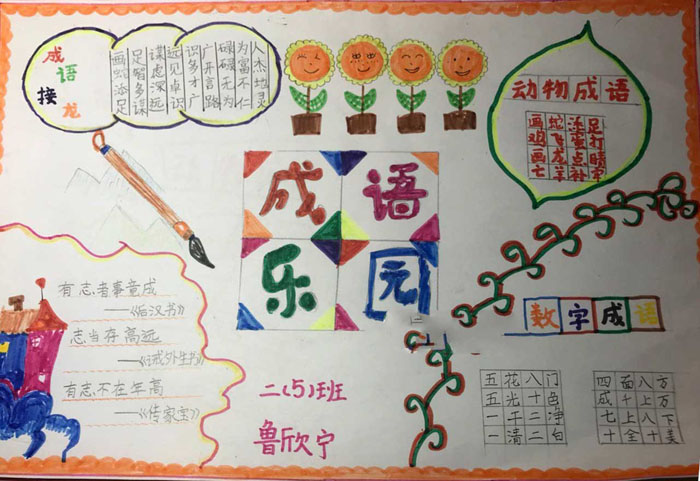 成语接龙
画蛇添足
足智多谋
谋虑深远
远见卓识
识多才广
广开言路
碌碌无为
为富不仁
人杰地灵
动物成语
画蛇添足
鸡飞蛋打
画龙点睛
亡羊补牢
成语
乐园
有志者事竟成
——《后汉书》
志当存高远
——《诫外生书》
有志不在年高
——《传家宝》
二(5)班
鲁欣宁
数字成语
五花八门
五光十色
一干二净
一清二白
四面八方
成千上万
七上八下
十全十美